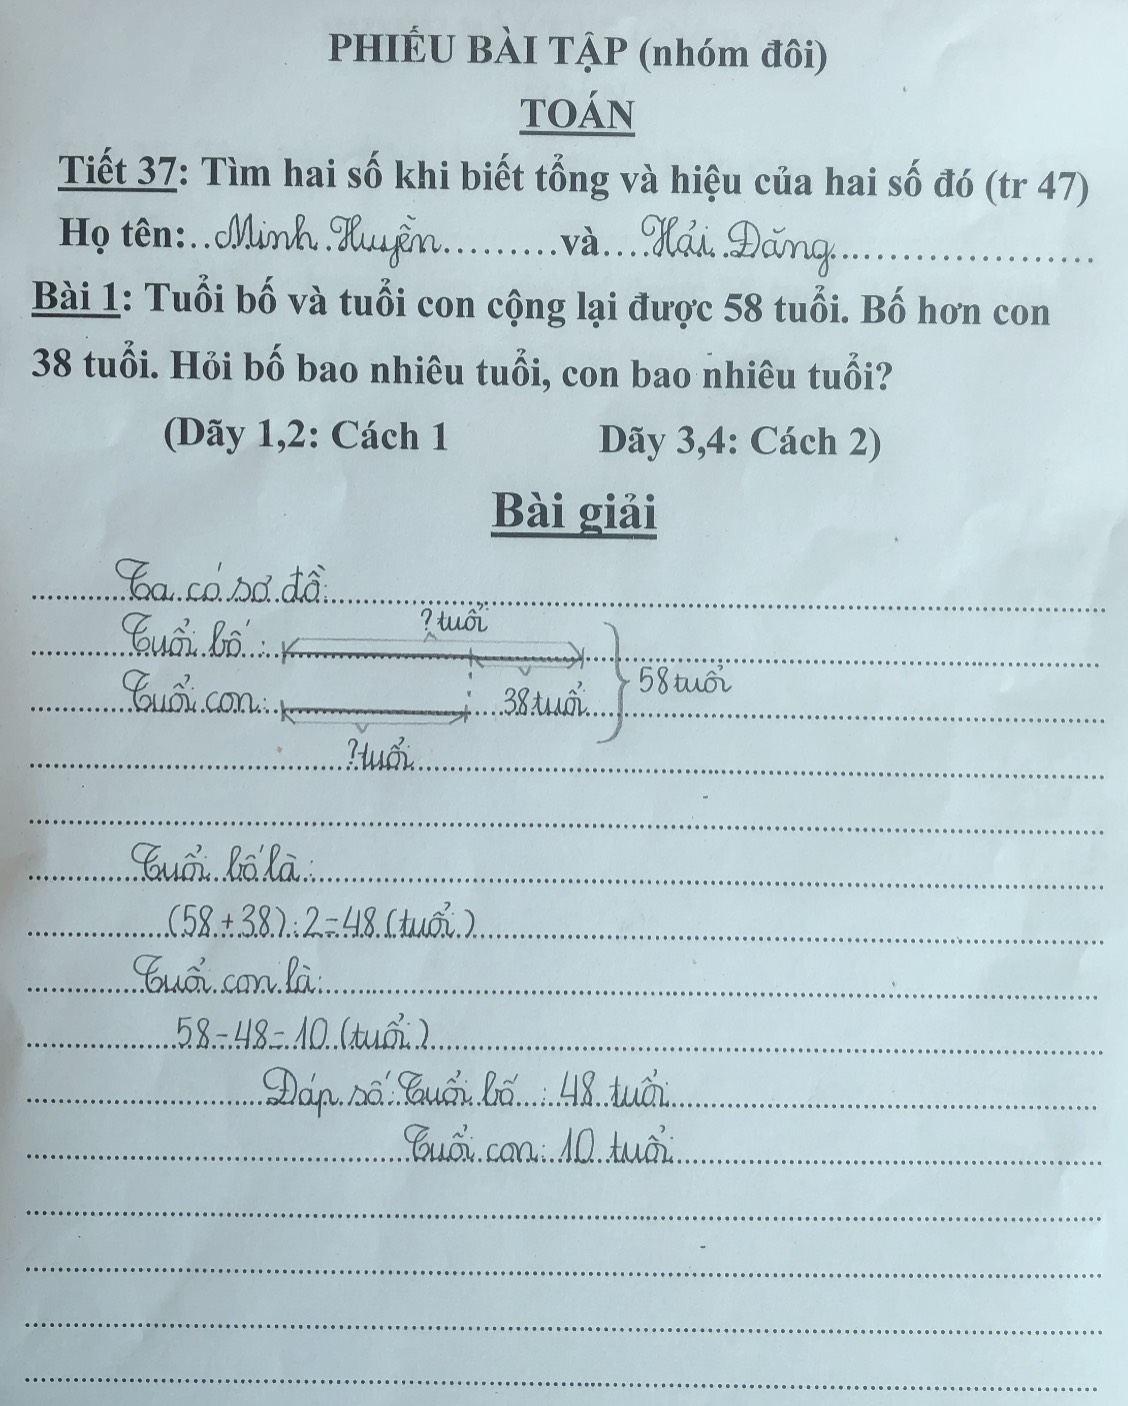 PHIẾU BÀI TẬP (nhóm đôi)
TOÁN
Tiết 37: Tìm hai số khi biết tổng và hiệu của hai số đó (tr 47)
Họ tên: Minh Huyền và Hải Đăng
Bài 1: Tuổi bố và tuổi con cộng lại được 58 tuổi. Bố hơn con
38 tuổi. Hỏi bố bao nhiêu tuổi, con bao nhiêu tuổi?
(Dãy 1,2: Cách 1 Dãy 3,4: Cách 2)
Bài giải
Ta có sơ đồ:
? tuổi
Tuổi bố :
58 tuổi
Tuổi con: 38 tuổi
? tuổi
Tuổi bố là:
(58 + 38) : 2 = 48 (tuổi)
Tuổi con là:
58 - 48 = 10 (tuổi)
Đáp số: Tuổi bố : 48 tuổi
Tuổi con: 10 tuổi